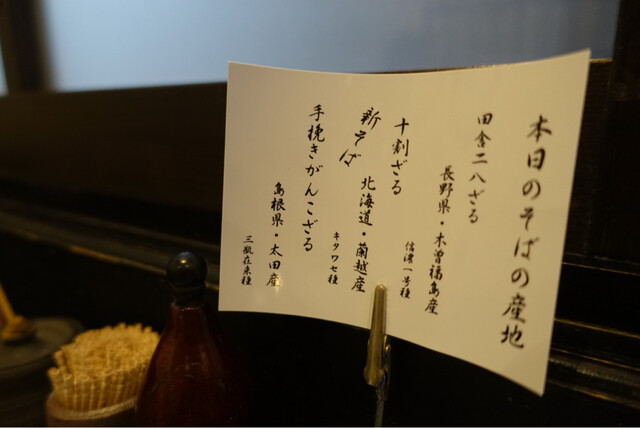 本日のそばの産地
田舎二八ざる
長野県・木曽福島産
信濃一号種
十割ざる
新そば
北海道・蘭越産
キタワセ種
手挽きがんこざる
島根県・太田産
三瓶在来種